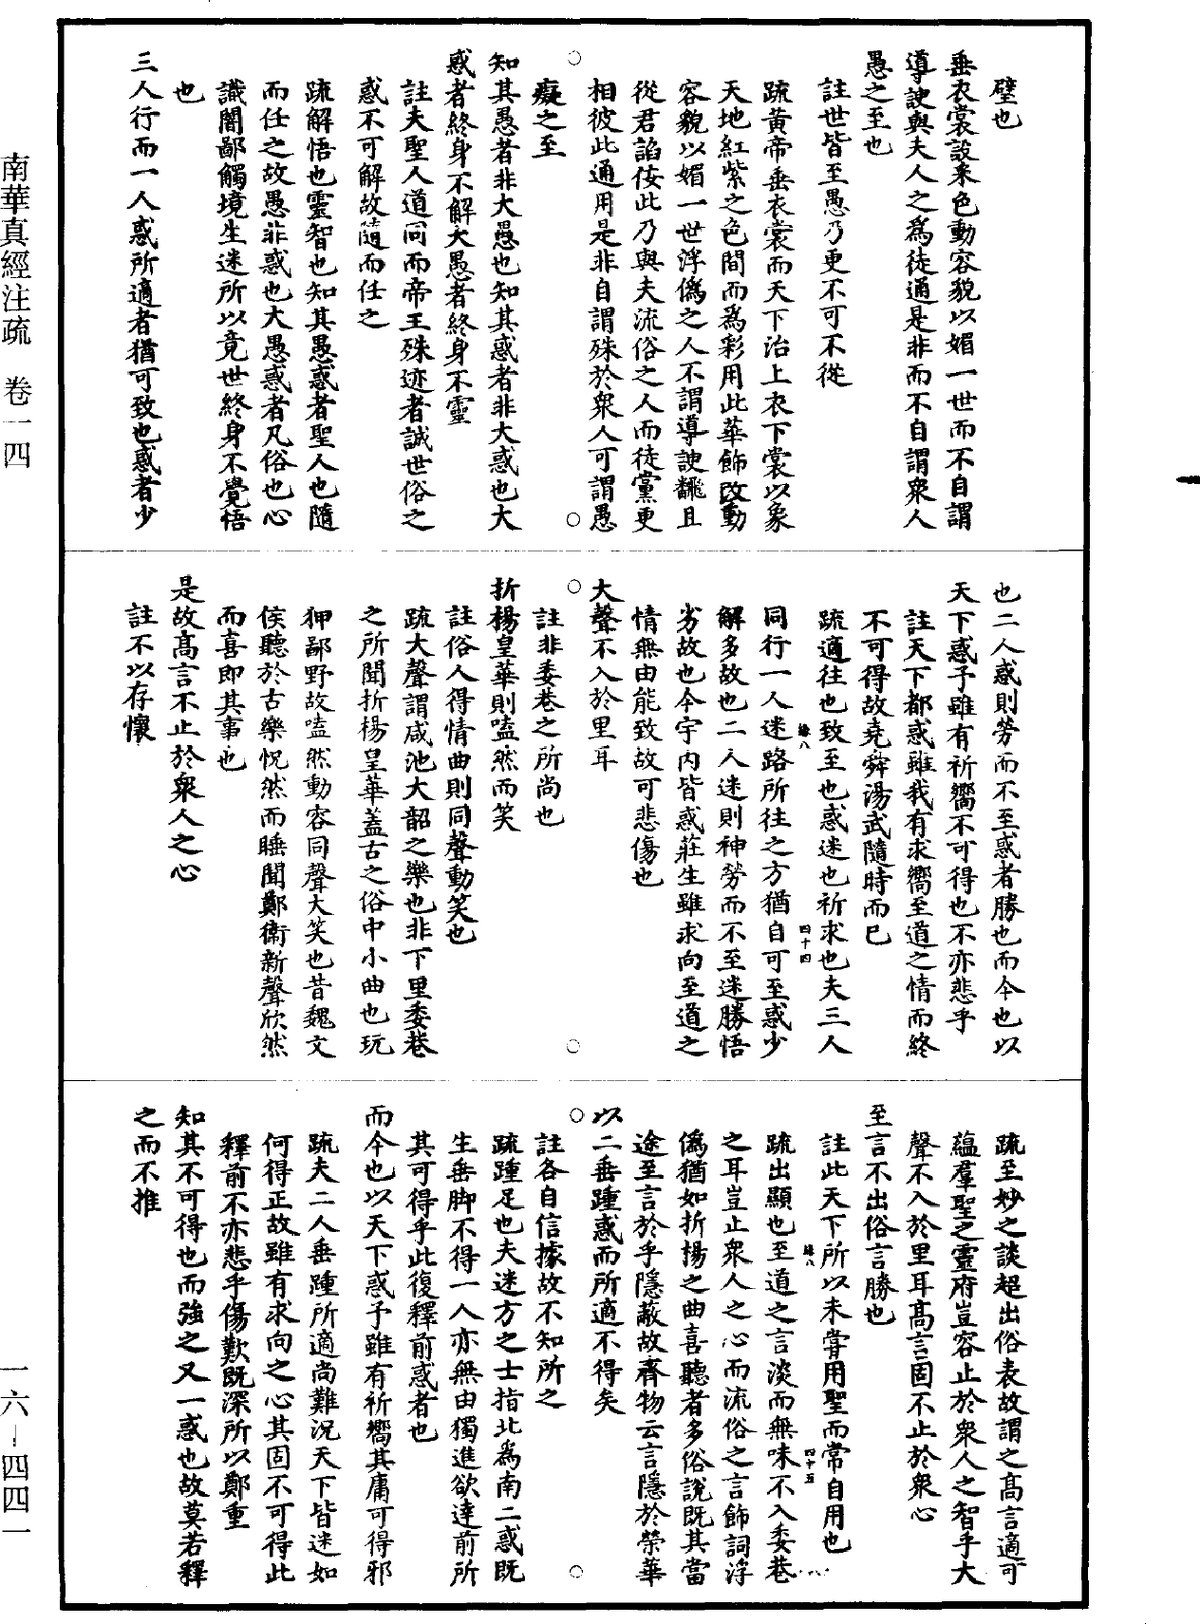 南華真經注疏　卷一四
一六—四四一
壁也
垂衣裳設釆色動容貌以媚一世而不自謂
導諛與夫人之為徒通是非而不自謂衆人
愚之至也
註世皆至愚乃更不可不從
疏黃帝垂衣裳而天下治上衣下裳以象
天地紅紫之色間而為彩用此華飾改動
容貌以媚一世浮偽之人不謂導諛飜且
從君諂佞此乃與夫流俗之人而徒黨更
相彼此通用是非自謂殊於衆人可謂愚
○　○
癡之至
知其愚者非大愚也知其惑者非大惑也大
惑者終身不解大愚者終身不靈
註夫聖人道同而帝王殊迹者誠世俗之
惑不可解故隨而任之
疏解悟也靈智也知其愚惑者聖人也隨
而任之故愚非惑也大愚惑者凡俗也心
識闇鄙觸境生迷所以竟世終身不覺悟
也
三人行而一人惑所適者猶可致也惑者少
也二人惑則勞而不至惑者勝也而今也以
天下惑予雖有祈嚮不可得也不亦悲乎
註天下都惑雖我有求嚮至道之情而終
不可得故堯舜湯武隨時而已
疏適往也致至也惑迷也祈求也夫三人
緣八　四十四
同行一人迷路所往之方猶自可至惑少
解多故也二人迷則神勞而不至迷勝悟
劣故也今宇內皆惑莊生雖求向至道之
情無由能致故可悲傷也
大聲不入於里耳
○　○
註非委巷之所尚也
折楊皇華則嗑然而笑
註俗人得情曲則同聲動笑也
疏大聲謂咸池大韶之樂也非下里委巷
之所聞折楊呈華蓋古之俗中小曲也玩
狎鄙野故嗑然動容同聲大笑也昔魏文
侯聽於古樂怳然而睡聞鄭衛新聲欣然
而喜即其事也
是故高言不止於衆人之心
註不以存懷
疏至妙之談超出俗表故謂之高言適可
蘊羣聖之靈府豈容止於衆人之智乎大
聲不入於里耳高言固不止於衆心
至言不出俗言勝也
註此天下所以未嘗用聖而常自用也
緣八　四十五
疏出顯也至道之言淡而無味不入委巷
之耳豈止衆人之心而流俗之言飾詞浮
偽猶如折楊之曲喜聽者多俗說既其當
途至言於乎隱蔽故齊物云言隱於榮華
以二垂踵惑而所適不得矣
○　○
註各自信據故不知所之
疏踵足也夫迷方之士指北為南二惑既
生垂脚不得一人亦無由獨進欲達前所
其可得乎此復釋前惑者也
而今也以天下惑予雖有祈嚮其庸可得邪
疏夫二人垂踵所適尚難況天下皆迷如
何得正故雖有求向之心其固不可得此
釋前不亦悲乎傷歎既深所以鄭重
知其不可得也而強之又一惑也故莫若釋
之而不推